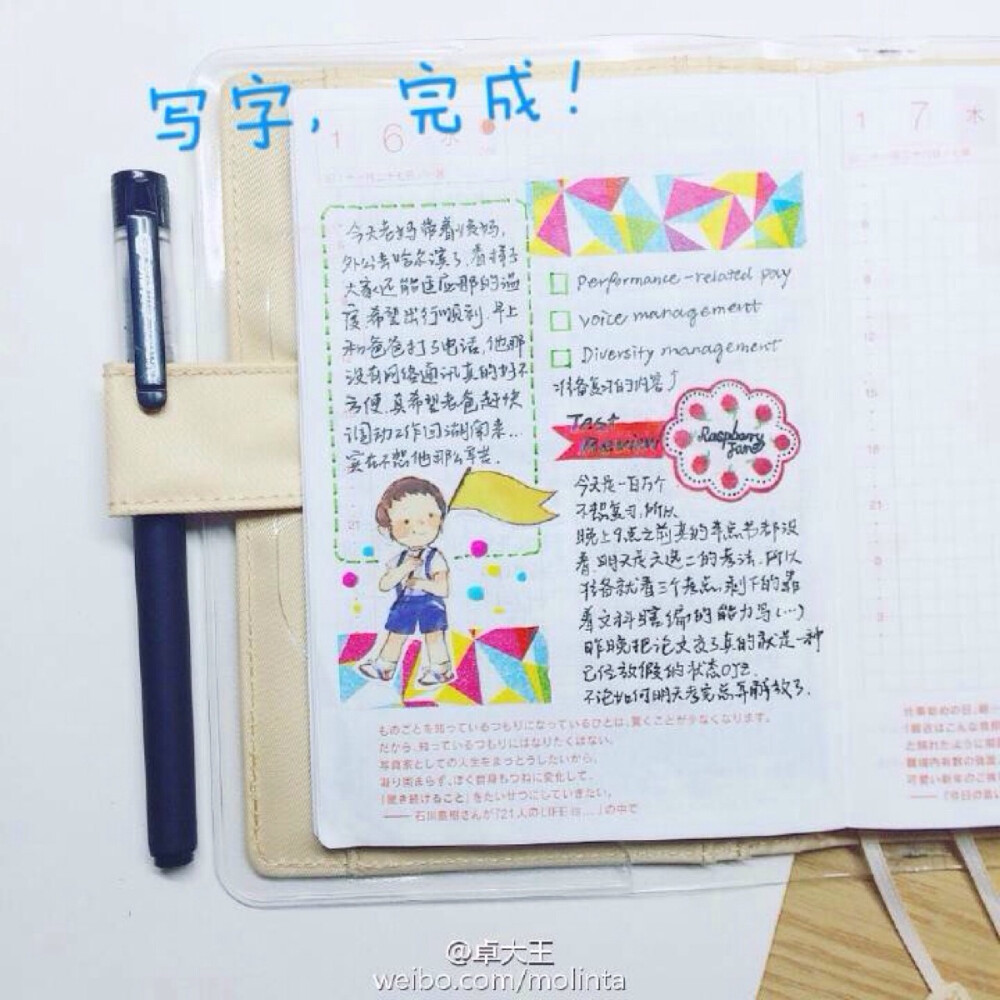 写字，完成！
1 6 水
1 7 木
今天老妈带着
外公去哈尔滨了，看样子
大家还能适应那的温
度希望出行顺利．早上
和爸爸打了电话，他那
没有网络通讯真的好不
方便，真希望老爸赶快
调动工作回湖南来…
实在不想他那么辛苦．
21
Performance-related pay
voice management
Diversity management
准备复习的内容↑
Test
Review
Raspberry
Jane
今天是一百万个
不想复习，所以
晚上9点之前真的幸点书都没
看明天是六选二的考法．所以
准备就看三个考点，剩下的靠
着文科瞎编的能力写(…)
昨晚把论文交了真的就是一种
已经放假的状态Orz
不论如何明天考完总算解放了．
ものごとを知っているつもりになっているひとは、驚くことが少なくなります。
だから、知っているつもりにはなりたくはない。
写真家としての人生をまっとうしたいから、
凝り固まらず、ぼく自身もつねに変化して、
「聞き続けること」をたいせつにしていきたい。
—— 石川直樹さんが『21人のLIFE is…』の中で
仕事始めの日、朝一
「最近はこんな
と照れたように
職場内有数の強面
可愛い新年のご挨
——『今日の
6
9
12
15
18
21
0
3
@卓大王
weibo.com/molinta